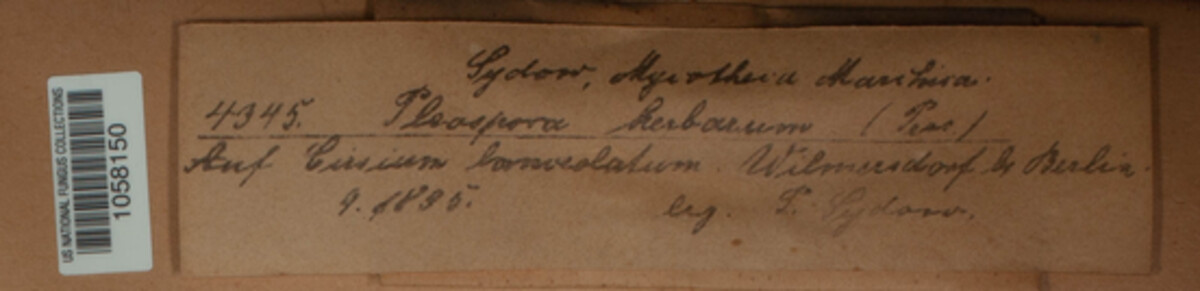 US NATIONAL FUNGUS COLLECTIONS
1058150
Sydow, Mycotheca Marchica.
4345. Pleospora herbarum (Pers.)
Auf Cirsium lanceolatum. Wilmersdorf b. Berlin.
9. 1895. leg. P. Sydow.